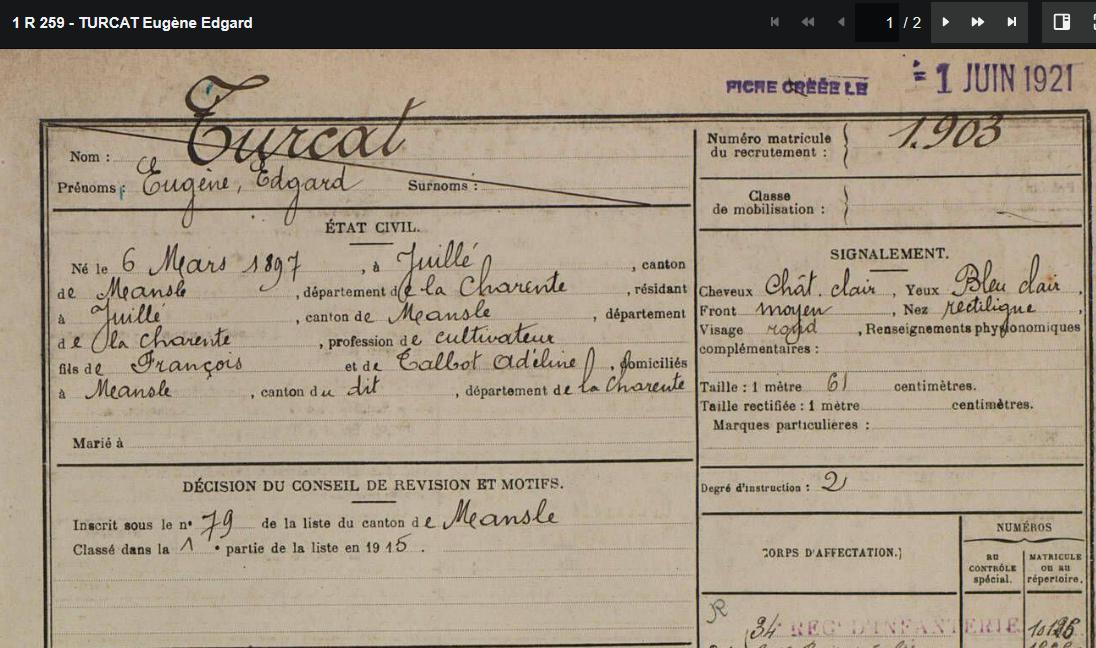 1 R 259 - TURCAT Eugène Edgard
1 / 2
FICHE CRÉÉE LE = 1 JUIN 1921
Nom : Turcat
Prénoms : Eugène, Edgard Surnoms :
Numéro matricule du recrutement : 1.903
Classe de mobilisation :
ÉTAT CIVIL.
Né le 6 Mars 1897, à Juillé, canton
de Mansle, département de la Charente, résidant
à Juillé, canton de Mansle, département
de la Charente, profession de cultivateur
fils de François et de Talbot Adéline, domiciliés
à Mansle, canton du dit, département de la Charente
Marié à
SIGNALEMENT.
Cheveux Chât. clair, Yeux Bleu clair,
Front moyen, Nez rectiligne,
Visage rond, Renseignements physionomiques
complémentaires :
Taille : 1 mètre 61 centimètres.
Taille rectifiée : 1 mètre centimètres.
Marques particulières :
Degré d'instruction : 2
DÉCISION DU CONSEIL DE REVISION ET MOTIFS.
Inscrit sous le n° 79 de la liste du canton de Mansle
Classé dans la 1 • partie de la liste en 1915.
CORPS D'AFFECTATION.
NUMÉROS
AU CONTRÔLE spécial.
MATRICULE ou au répertoire.
R
34 REG. D'INFANTERIE